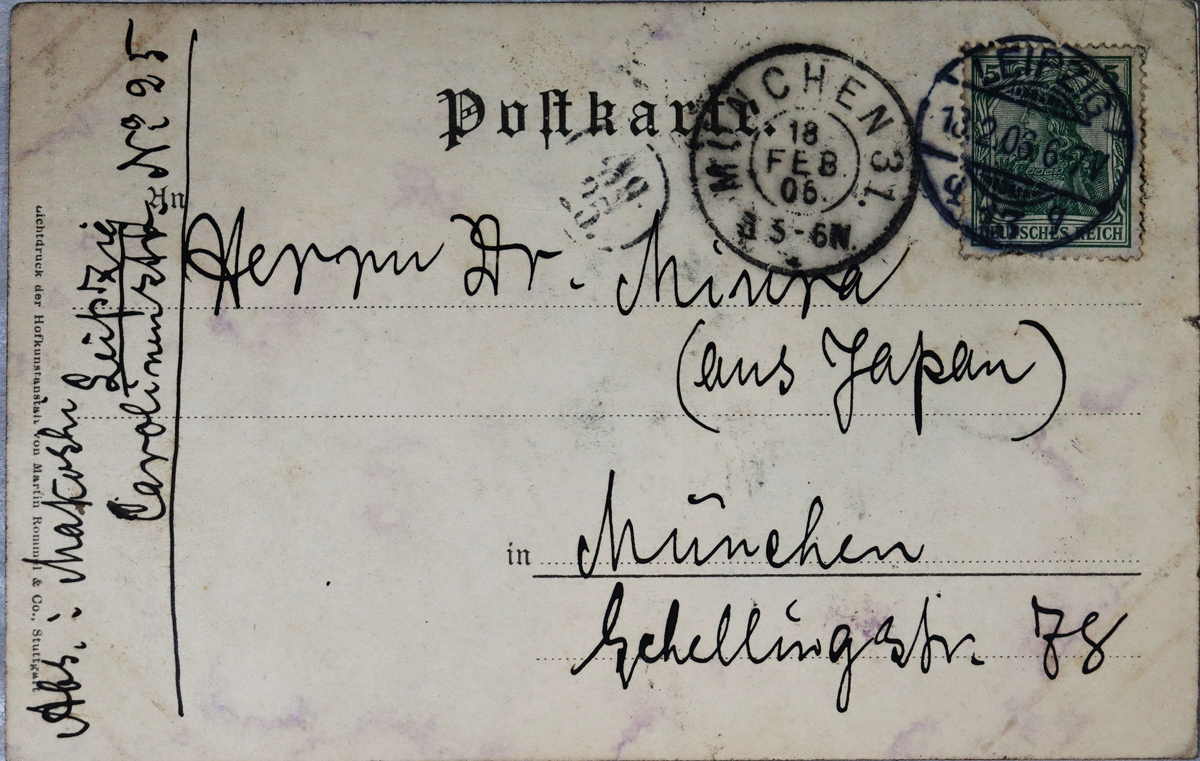 Postkarte.
MÜNCHEN 31.
18
FEB
06.
3-6N.
LEIPZIG
DEUTSCHES REICH
An
Herrn Dr. Miura
(aus Japan)
in München
Schellingstr. 78
Abs.: Makoshi
Leipzig
Carolinenstr. No 25
Lichtdruck der Hofkunstanstalt von Martin Rommel & Co., Stuttgart